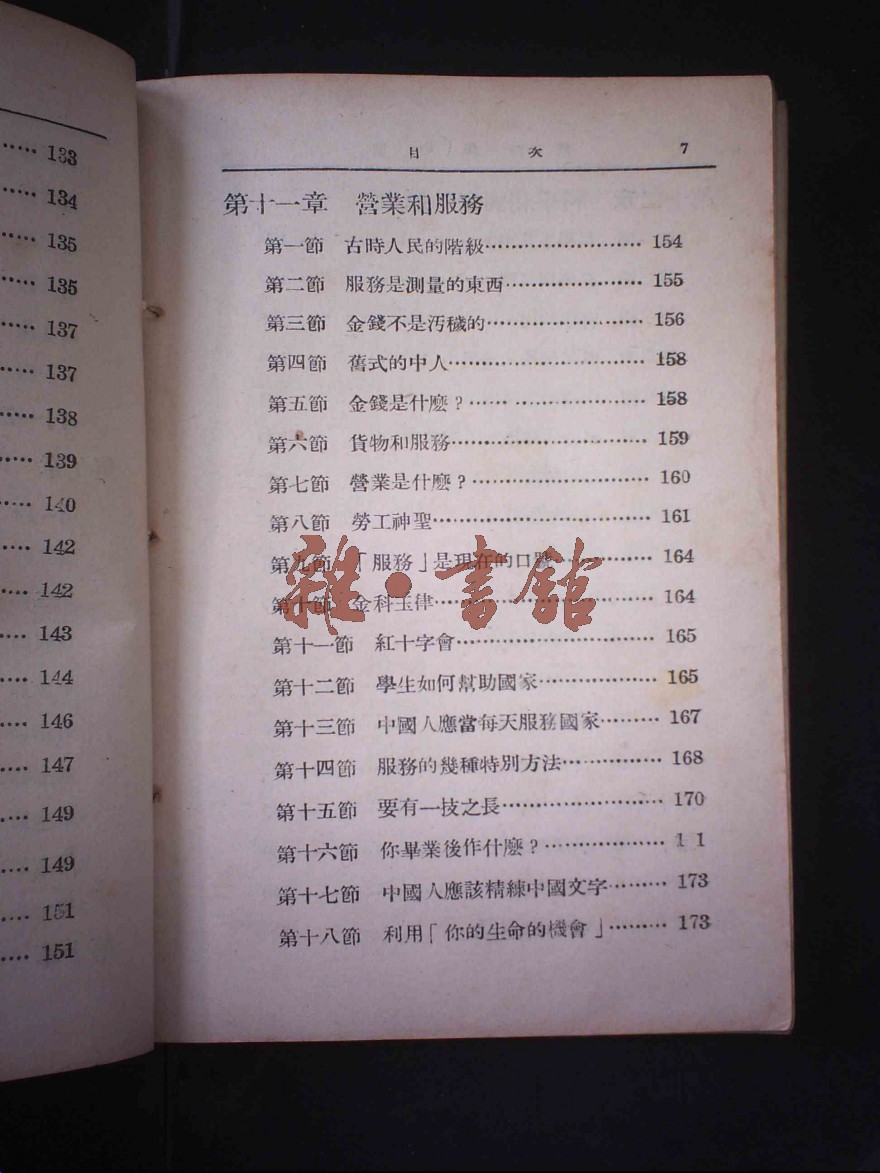 133
134
135
135
137
137
138
139
140
142
142
143
144
146
147
149
149
151
151
目次 7
第十一章 營業和服務
第一節 古時人民的階級························ 154
第二節 服務是測量的東西····················· 155
第三節 金錢不是汚穢的························ 156
第四節 舊式的中人······························ 158
第五節 金錢是什麽?······ ···················· 158
第六節 貨物和服務······························ 159
第七節 營業是什麽?··························· 160
第八節 勞工神聖································· 161
第九節 「服務」是現在的口號··············· 164
第十節 金科玉律································· 164
第十一節 紅十字會······························ 165
第十二節 學生如何幫助國家·················· 165
第十三節 中國人應當每天服務國家········· 167
第十四節 服務的幾種特別方法··············· 168
第十五節 要有一技之長························ 170
第十六節 你畢業後作什麽?·················· 1 1
第十七節 中國人應該精練中國文字········· 173
第十八節 利用「你的生命的機會」········· 173
雜·書館